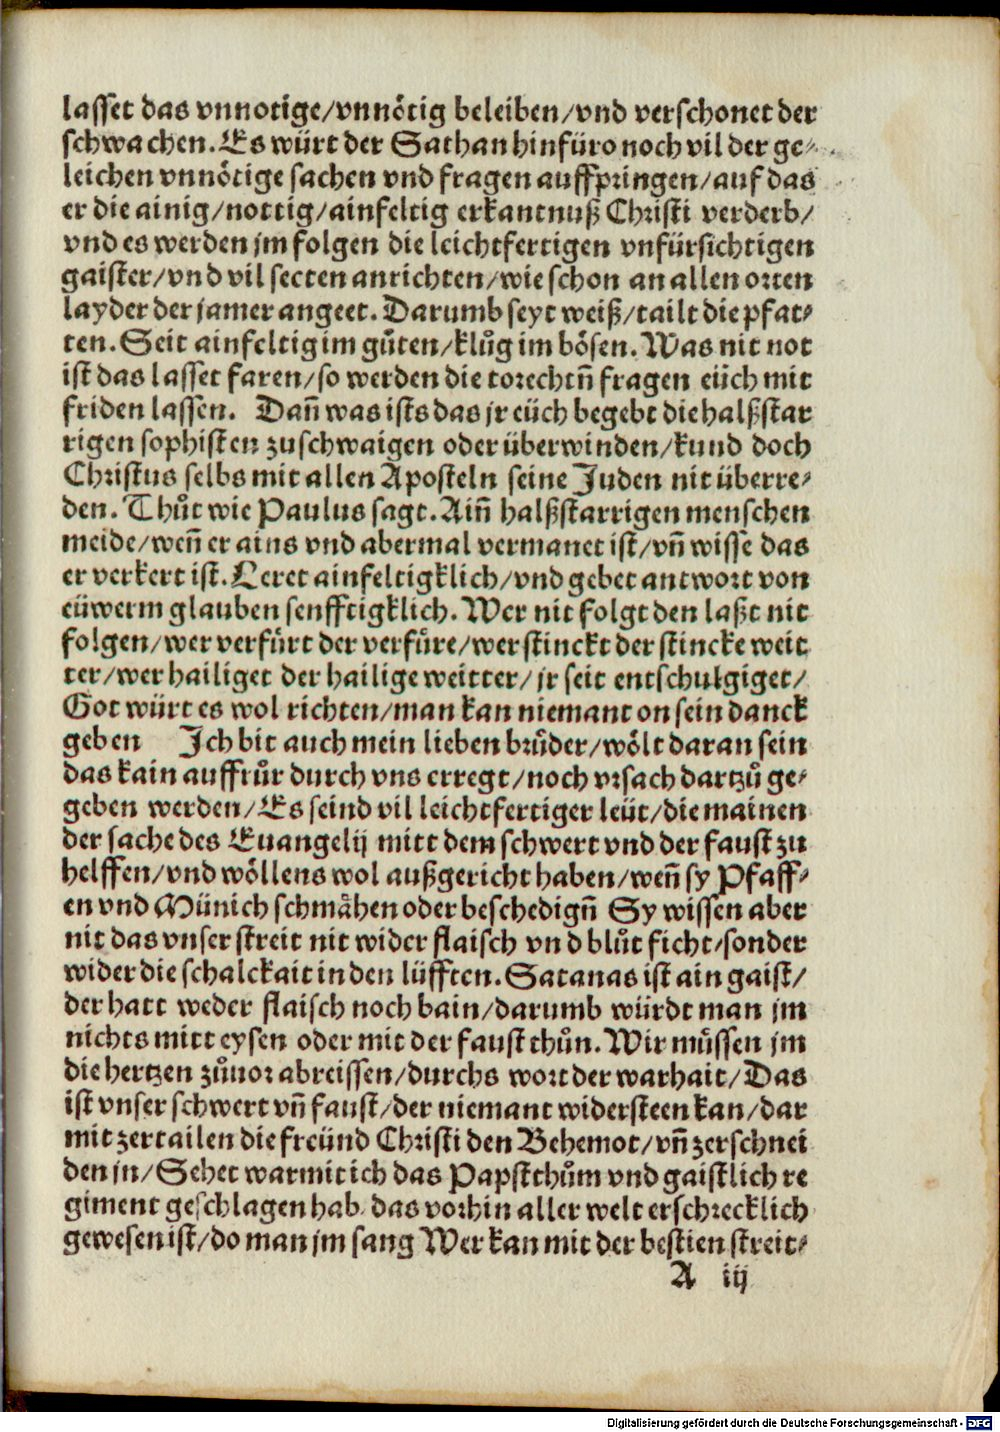 lasset das vnnotige/vnnötig beleiben/vnd verschonet der
schwachen. Es würt der Sathan hinfüro noch vil der ge⸗
leichen vnnötige sachen vnd fragen auffpringen/auf das
er die ainig/nottig/ainfeltig erkantnuß Christi verderb/
vnd es werden jm folgen die leichtfertigen vnfürsichtigen
gaister/vnd vil secten anrichten/wie schon an allen orten
layder der jamer angeet. Darumb seyt weiß/tailt die pfat⸗
ten. Seit ainfeltig im gůten/klůg im bösen. Was nit not
ist das lasset faren/so werden die torechtn̄ fragen eüch mit
friden lassen. Dan̄ was ists das jr eüch begebt die halßstar
rigen sophisten zu schwaigen oder überwinden/kund doch
Christus selbs mit allen Aposteln seine Juden nit überre⸗
den. Thůt wie Paulus sagt. Ain̄ halßstarrigen menschen
meide/wen̄ er ains vnd abermal vermanet ist/vn̄ wisse das
er verkert ist. Leret ainfeltigklich/vnd gebet antwort von
eüwerm glauben senfftigklich. Wer nit folgt den laßt nit
folgen/wer verfürt der verfüre/wer stinckt der stincke weit
ter/wer hailiget der hailige weitter/jr seit entschulgiget/
Got würt es wol richten/man kan niemant on sein danck
geben Ich bit auch mein lieben brůder/wölt daran sein
das kain auffrůr durch vns erregt/noch vrsach dartzů ge⸗
geben werden/Es seind vil leichtfertiger leüt/die mainen
der sache des Euangelij mitt dem schwert vnd der faust zu
helffen/vnd wöllens wol außgericht haben/wen̄ sy Pfaff⸗
en vnd Münich schmähen oder beschedign̄ Sy wissen aber
nit das vnser streit nit wider flaisch vnd blůt ficht/sonder
wider die schalckait in den lüfften. Satanas ist ain gaist/
der hatt weder flaisch noch bain/darumb würdt man jm
nichts mitt eysen oder mit der faust thůn. Wir müssen jm
die hertzen zůuor abreissen/durchs wort der warhait/Das
ist vnser schwert vn̄ faust/der niemant widersteen kan/dar
mit zertailen die freünd Christi den Behemot/vn̄ zerschnei
den jn/Sehet warmit ich das Papstthům vnd gaistlich re
giment geschlagen hab das vorhin aller welt erschrecklich
gewesen ist/do man jm sang Wer kan mit der bestien streit⸗
A iij
Digitalisierung gefördert durch die Deutsche Forschungsgemeinschaft - DFG